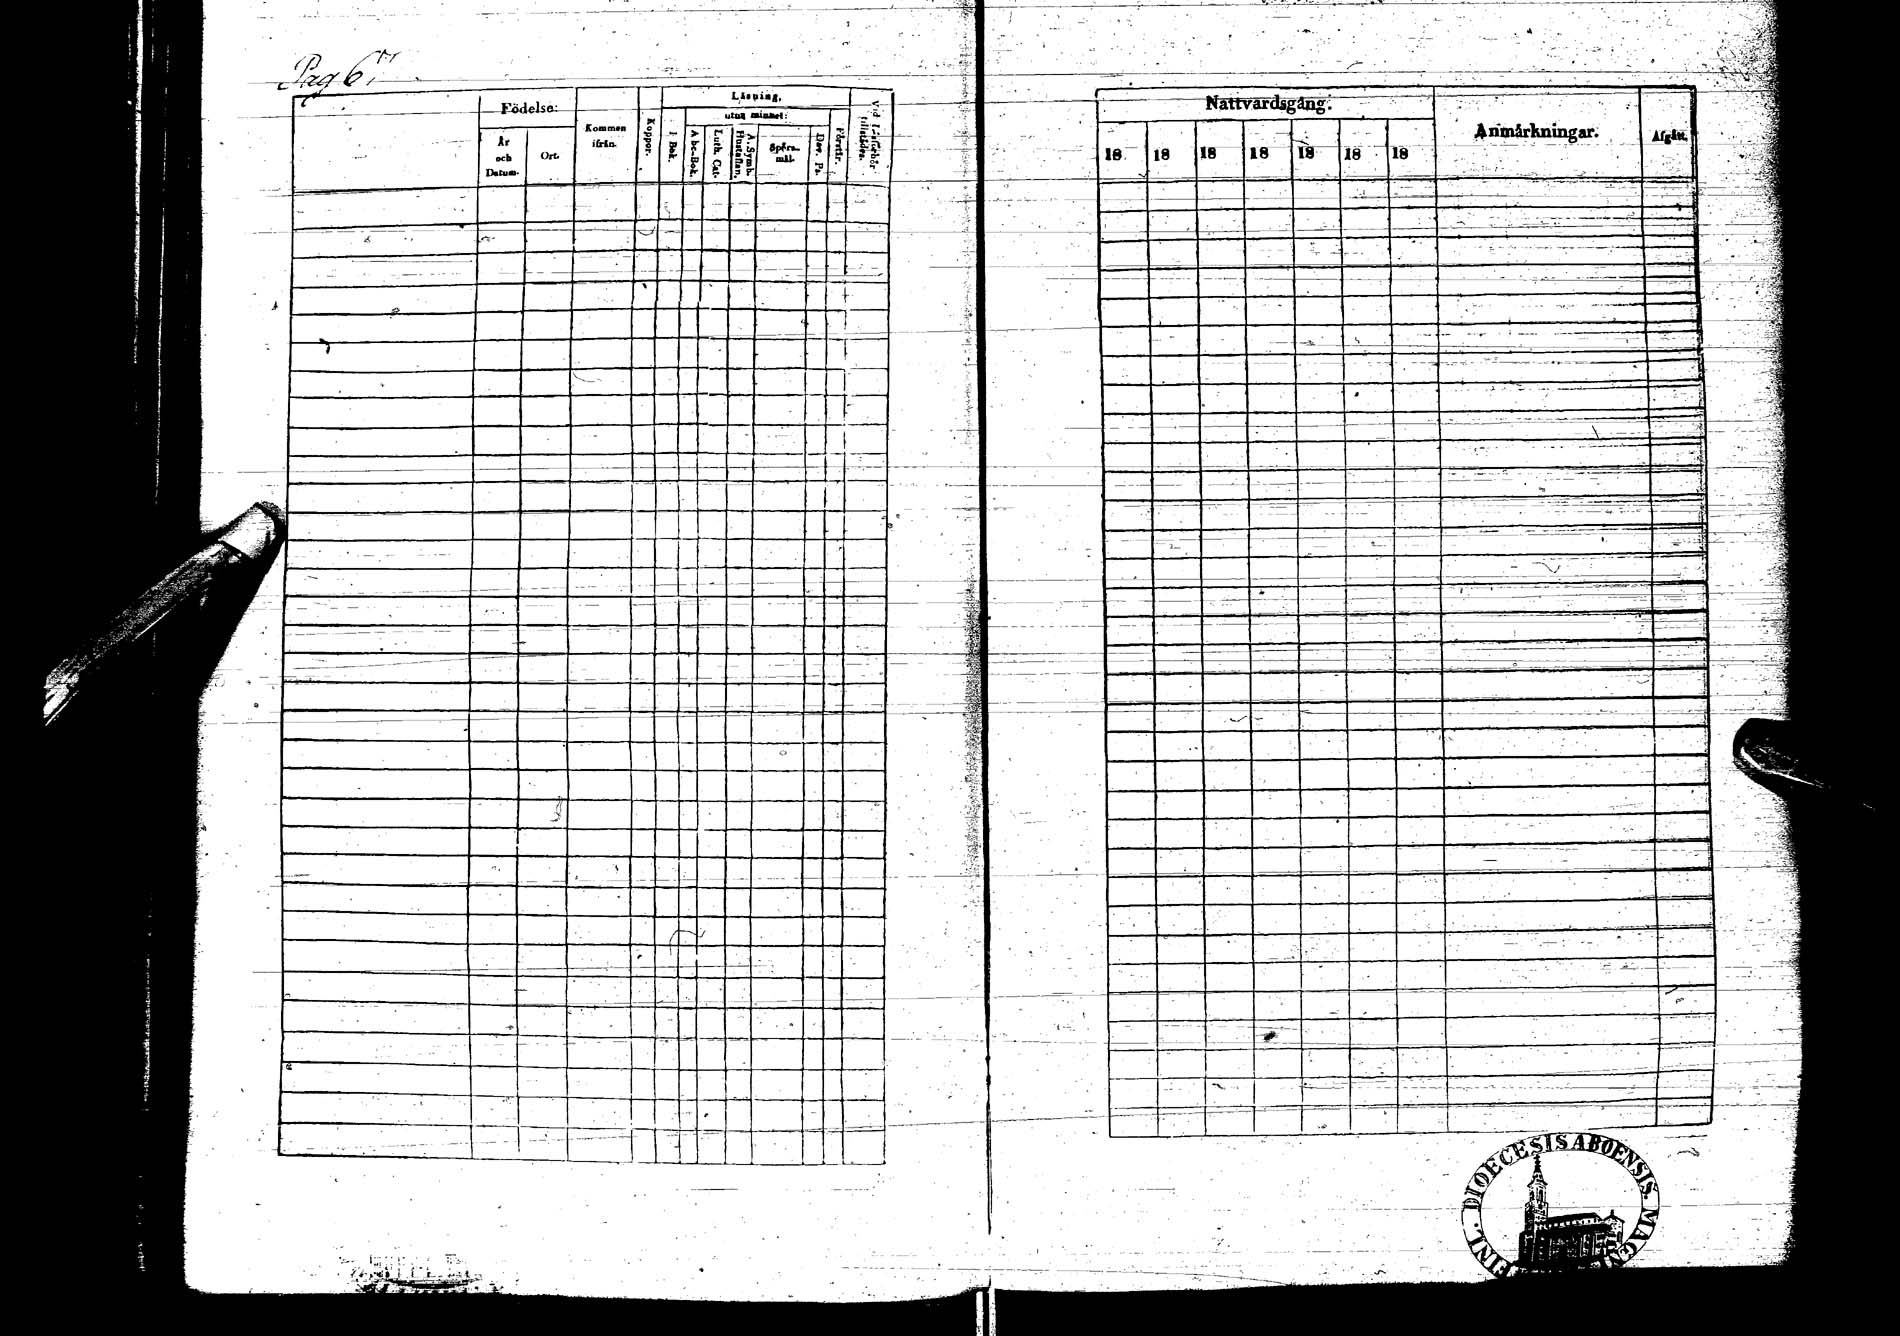 Pag 67
Födelse:
År
och
Datum.
Ort.
Kommen
ifrån.
Koppor.
Läsning,
I Bok.
utur minnet:
Abc-Bok.
Luth. Cat.
A. Symb.
Hustaflan.
Spörs-
mål.
Dav. Ps.
Förstår.
Vid Läsförhör
tillstädes.
Nattvardsgång.
18 18 18 18 18 18 18
Anmärkningar.
Afgått.
FINL. DIOECESIS ABOENSIS. MAGN